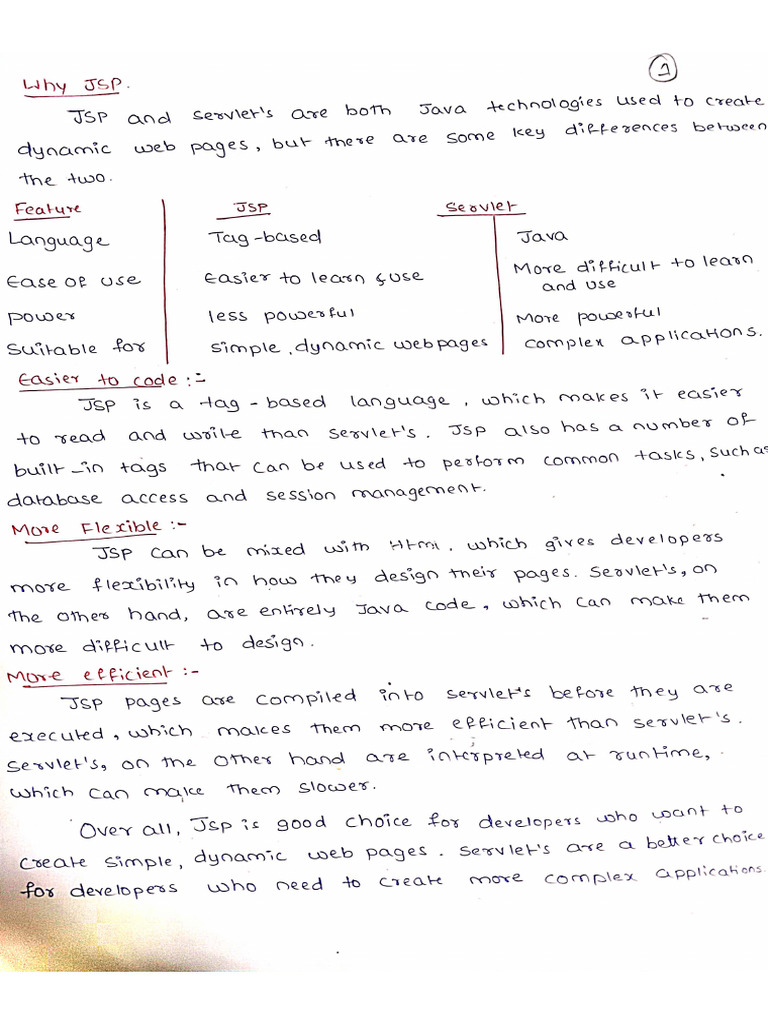 1
Why JSP.
JSP and servlet's are both Java technologies used to create
dynamic web pages, but there are some key differences between
the two.
Feature JSP Servlet
Language Tag-based Java
Ease of use Easier to learn & use More difficult to learn
and use
power less powerful More powerful
Suitable for simple, dynamic webpages complex applications.
Easier to code :-
JSP is a tag-based language, which makes it easier
to read and write than servlet's. JSP also has a number of
built-in tags that can be used to perform common tasks, such as
database access and session management.
More Flexible :-
JSP can be mixed with Html, which gives developers
more flexibility in how they design their pages. Servlet's, on
the other hand, are entirely Java code, which can make them
more difficult to design.
More efficient :-
JSP pages are compiled into servlet's before they are
executed, which makes them more efficient than servlet's.
Servlet's, on the other hand are interpreted at runtime,
which can make them slower.
Over all, JSP is good choice for developers who want to
create simple, dynamic web pages. Servlet's are a better choice
for developers who need to create more complex applications.